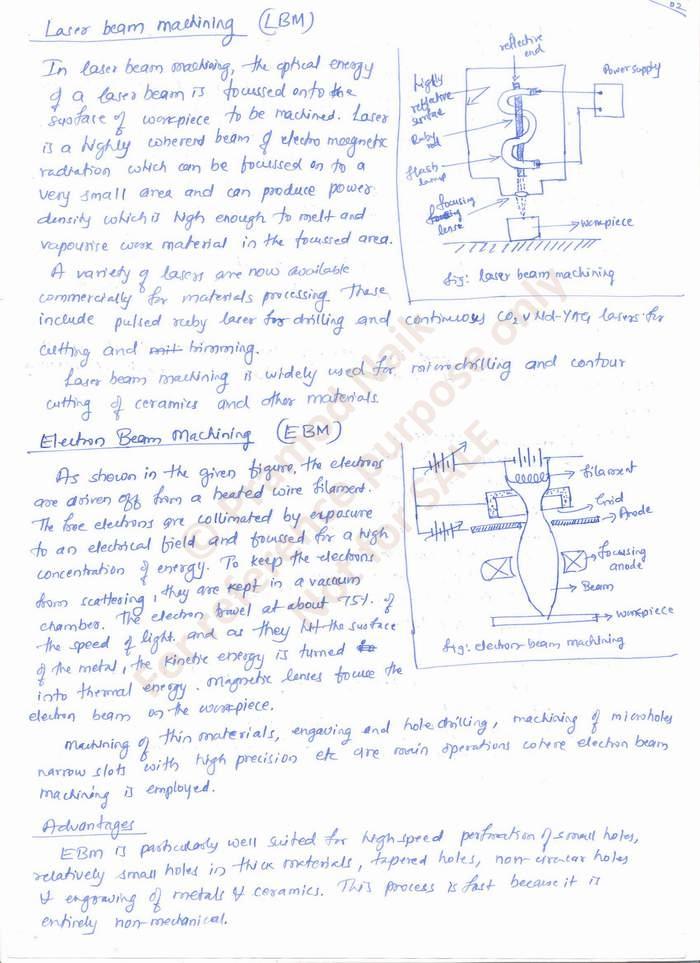 02
Laser beam machining (LBM)
In laser beam machining, the optical energy
of a laser beam is focussed onto the
surface of workpiece to be machined. Laser
is a highly coherent beam of electro magnetic
radiation which can be focussed on to a
very small area and can produce power
density which is high enough to melt and
vapourise work material in the focussed area.
A variety of lasers are now available
commercially for materials processing. These
include pulsed ruby laser for drilling and continuous CO2 & Nd-YAG lasers for
cutting and trimming.
Laser beam machining is widely used for microdrilling and contour
cutting of ceramics and other materials.
reflective
end
Power supply
highly
reflective
surface
Ruby
rod
flash
lamp
focusing
lense
workpiece
fig: laser beam machining
Electron Beam Machining (EBM)
As shown in the given figure, the electrons
are driven off from a heated wire filament.
The free electrons are collimated by exposure
to an electrical field and focussed for a high
concentration of energy. To keep the electrons
from scattering, they are kept in a vacuum
chamber. The electron travel at about 75% of
the speed of light. and as they hit the surface
of the metal, the kinetic energy is turned
into thermal energy. Magnetic lenses focuse the
electron beam on the workpiece.
Machining of thin materials, engaving and hole drilling, machining of microholes
narrow slots with high precision etc are main operations where electron beam
machining is employed.
filament
Grid
Anode
focussing
anode
Beam
workpiece
fig: electron beam machining
Advantages
EBM is particularly well suited for high speed perforation of small holes,
relatively small holes in thick materials, tapered holes, non-circular holes
& engraving of metals & ceramics. This process is fast because it is
entirely non-mechanical.
© Pramod Naik
For reference purpose only
Not for SALE